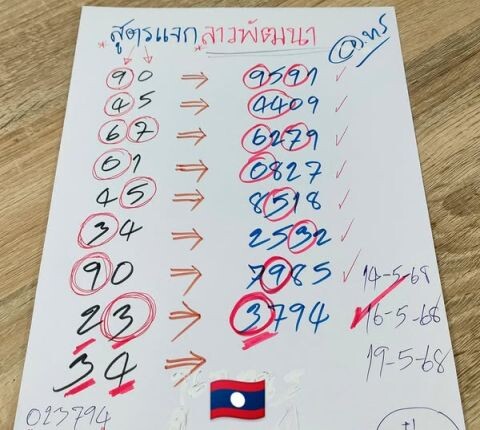 *สูตรแจกลาวพัฒนา*
90 ⇒ 9591 ✓
45 ⇒ 4409 ✓
67 ⇒ 6279 ✓
01 ⇒ 0827 ✓
45 ⇒ 8518 ✓
34 ⇒ 2532 ✓
90 ⇒ 7985 ✓ 14-5-68
23 ⇒ 3794 ✓ 16-5-68
34 ⇒ 19-5-68
023794